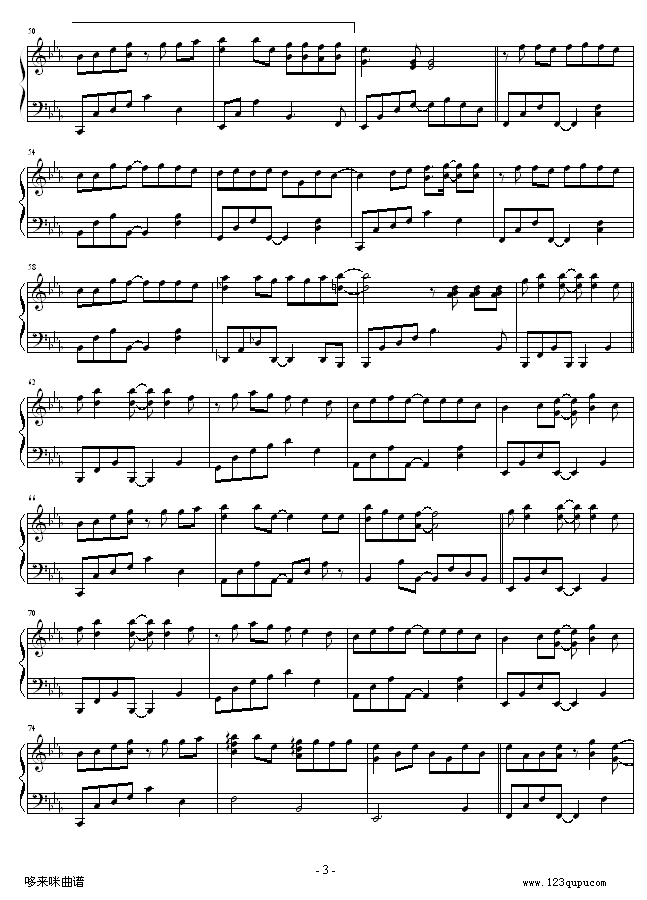 50
54
58
62
66
70
74
- 3 -
哆来咪曲谱
www.123qupu.com